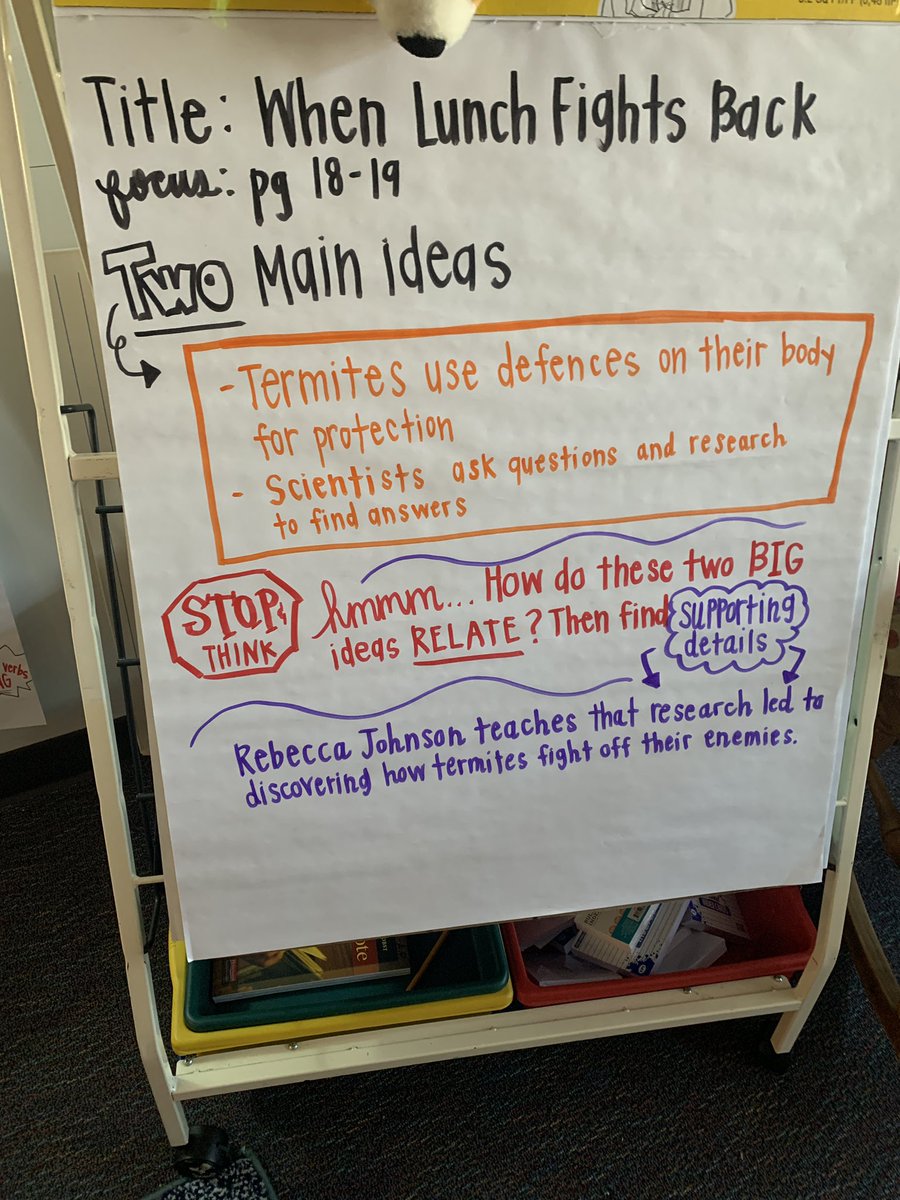 Title: When Lunch Fights Back
focus: pg 18-19
Two Main ideas
- Termites use defences on their body
for protection
- Scientists ask questions and research
to find answers
STOP &
THINK
hmmm... How do these two BIG
ideas RELATE? Then find
supporting
details
Rebecca Johnson teaches that research led to
discovering how termites fight off their enemies.
verbs